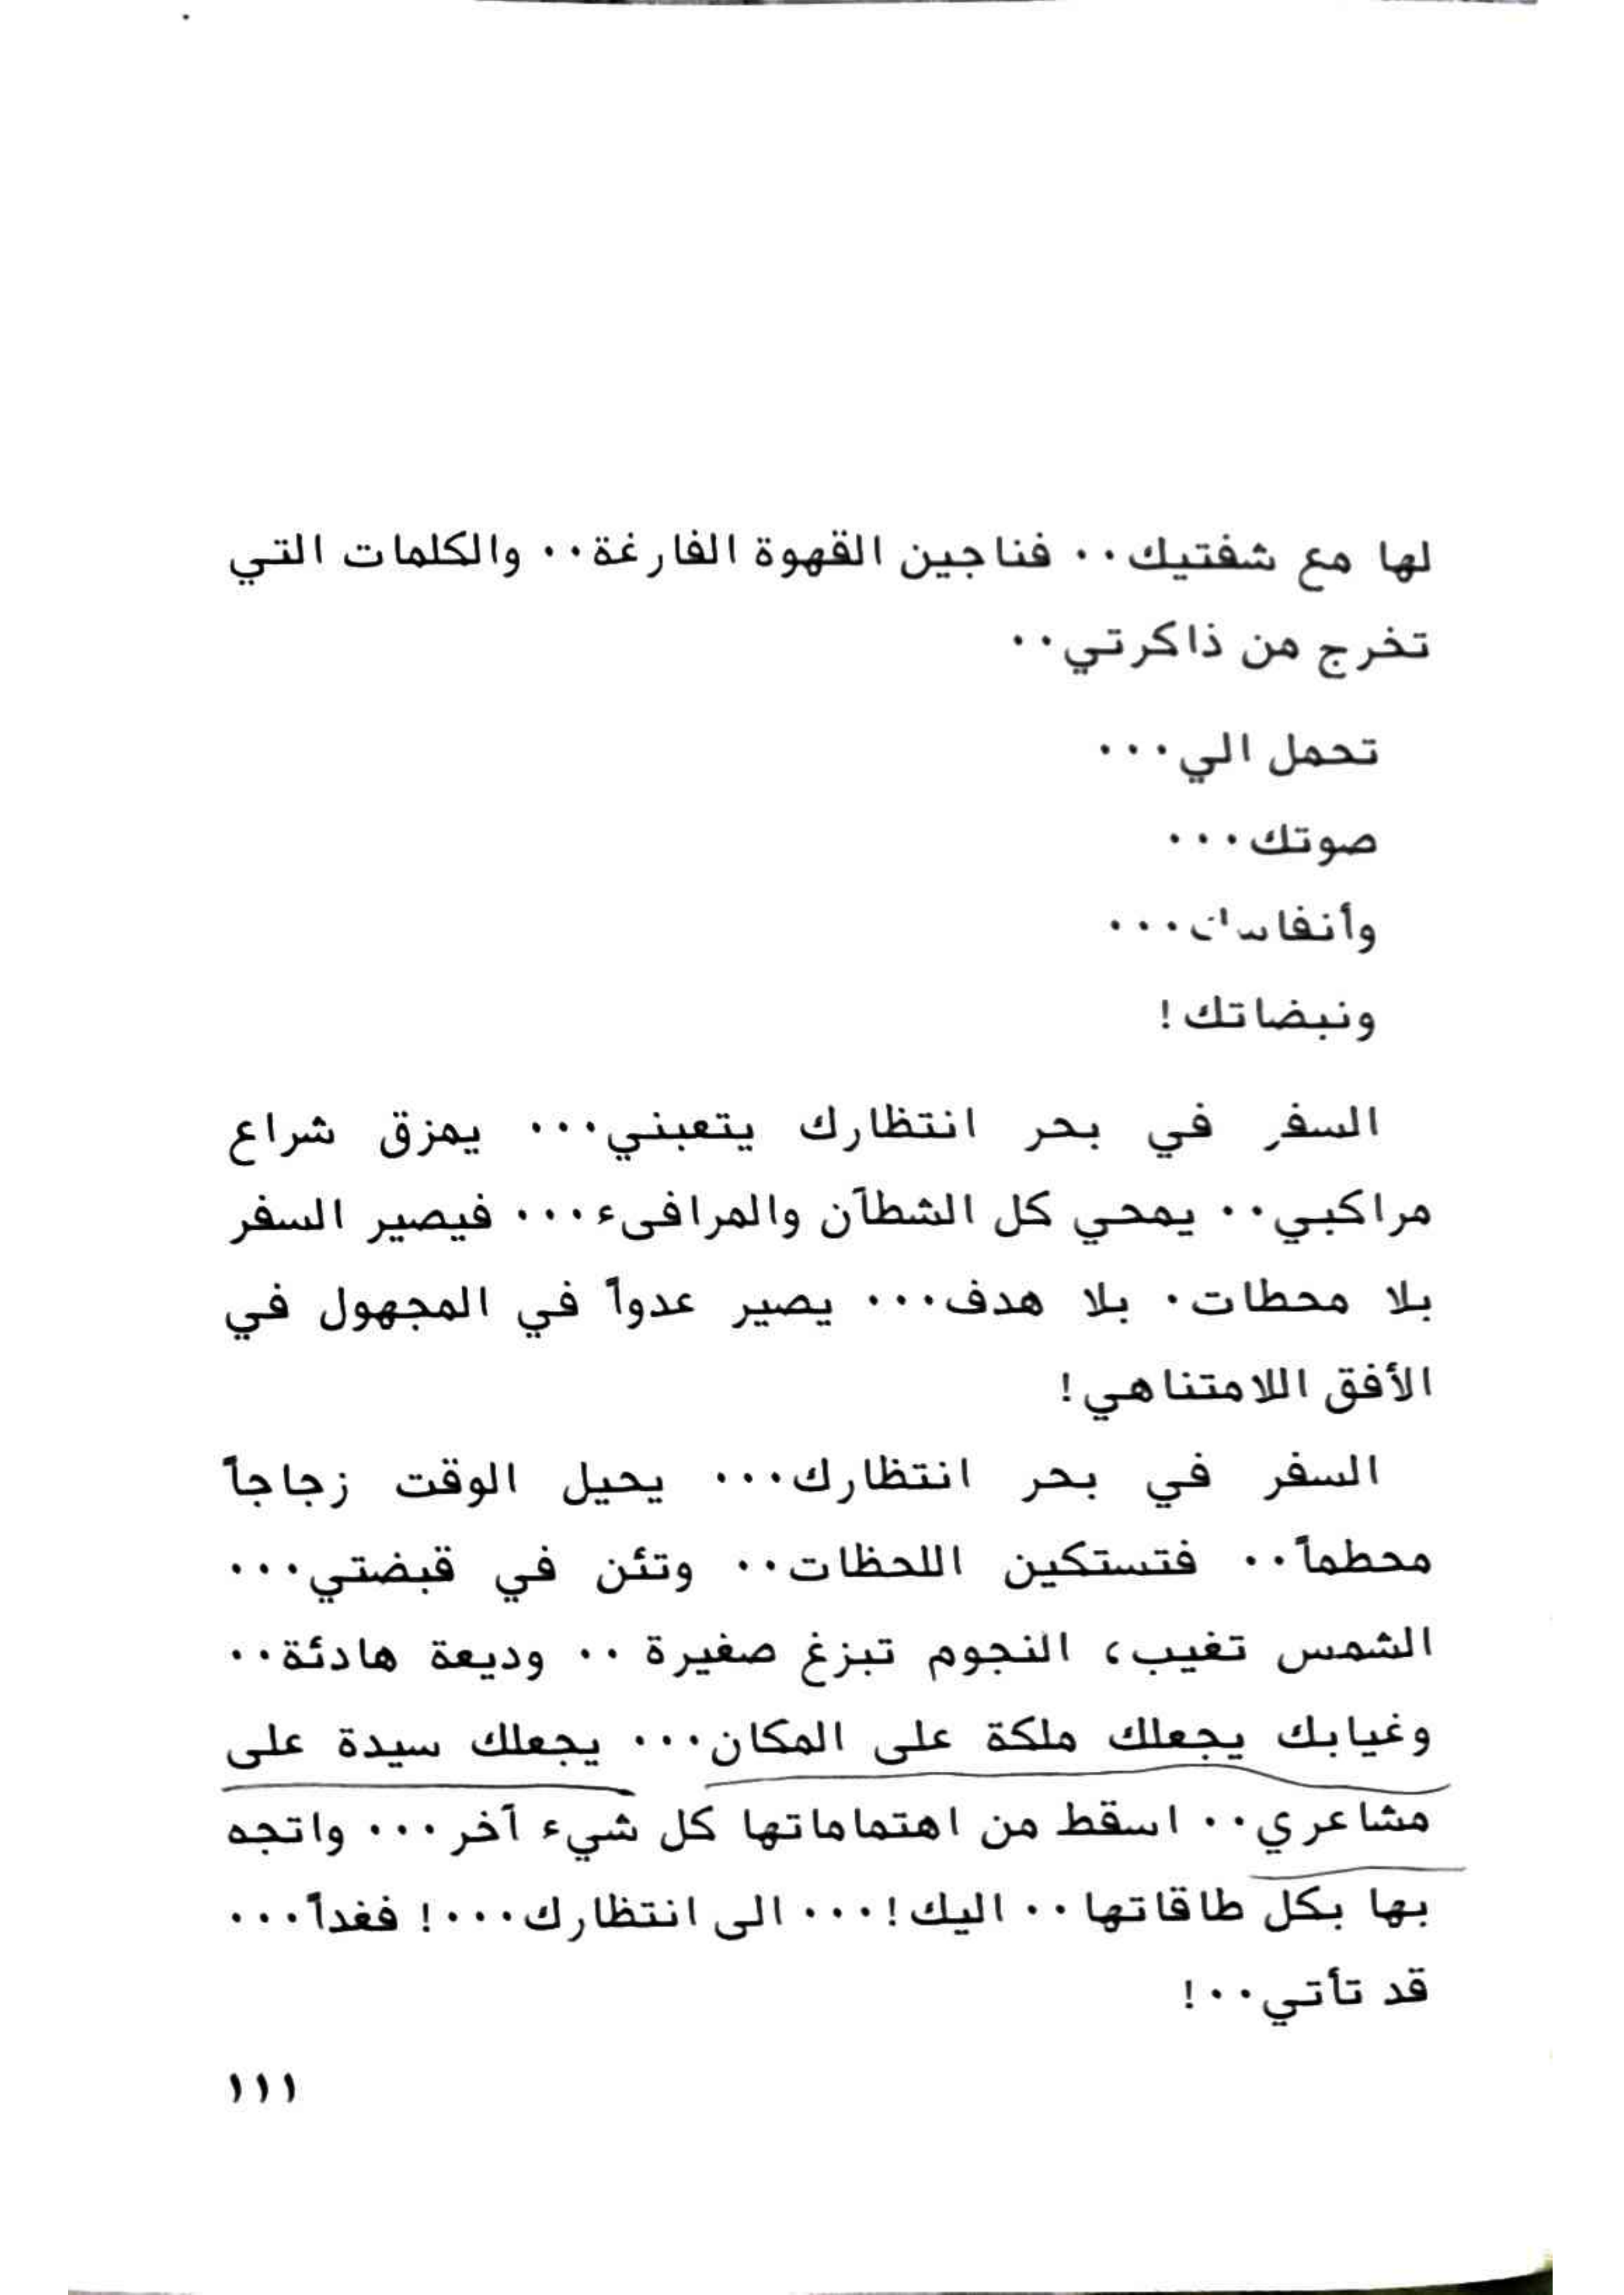 لها مع شفتيك٠٠ فناجين القهوة الفارغة٠٠ والكلمات التي
تخرج من ذاكرتي٠٠
تحمل الي٠٠٠
صوتك٠٠٠
٠٠٠
ونبضاتك!
السفر في بحر انتظارك يتعبني٠٠٠ يمزق شراع
مراكبي٠٠ يمحي كل الشطآن والمرافىء٠٠٠ فيصير السفر
بلا محطات٠ بلا هدف٠٠٠ يصير عدواً في المجهول في
الأفق اللامتناهي!
السفر في بحر انتظارك٠٠٠ يحيل الوقت زجاجاً
محطماً٠٠ فتستكين اللحظات٠٠ وتئن في قبضتي٠٠٠
الشمس تغيب، النجوم تبزغ صغيرة ٠٠ وديعة هادئة٠٠
وغيابك يجعلك ملكة على المكان٠٠٠ يجعلك سيدة على
مشاعري٠٠ اسقط من اهتماماتها كل شيء آخر٠٠٠ واتجه
بها بكل طاقاتها٠٠ اليك!٠٠٠ الى انتظارك٠٠٠! فغداً٠٠٠
قد تأتي٠٠!
١١١